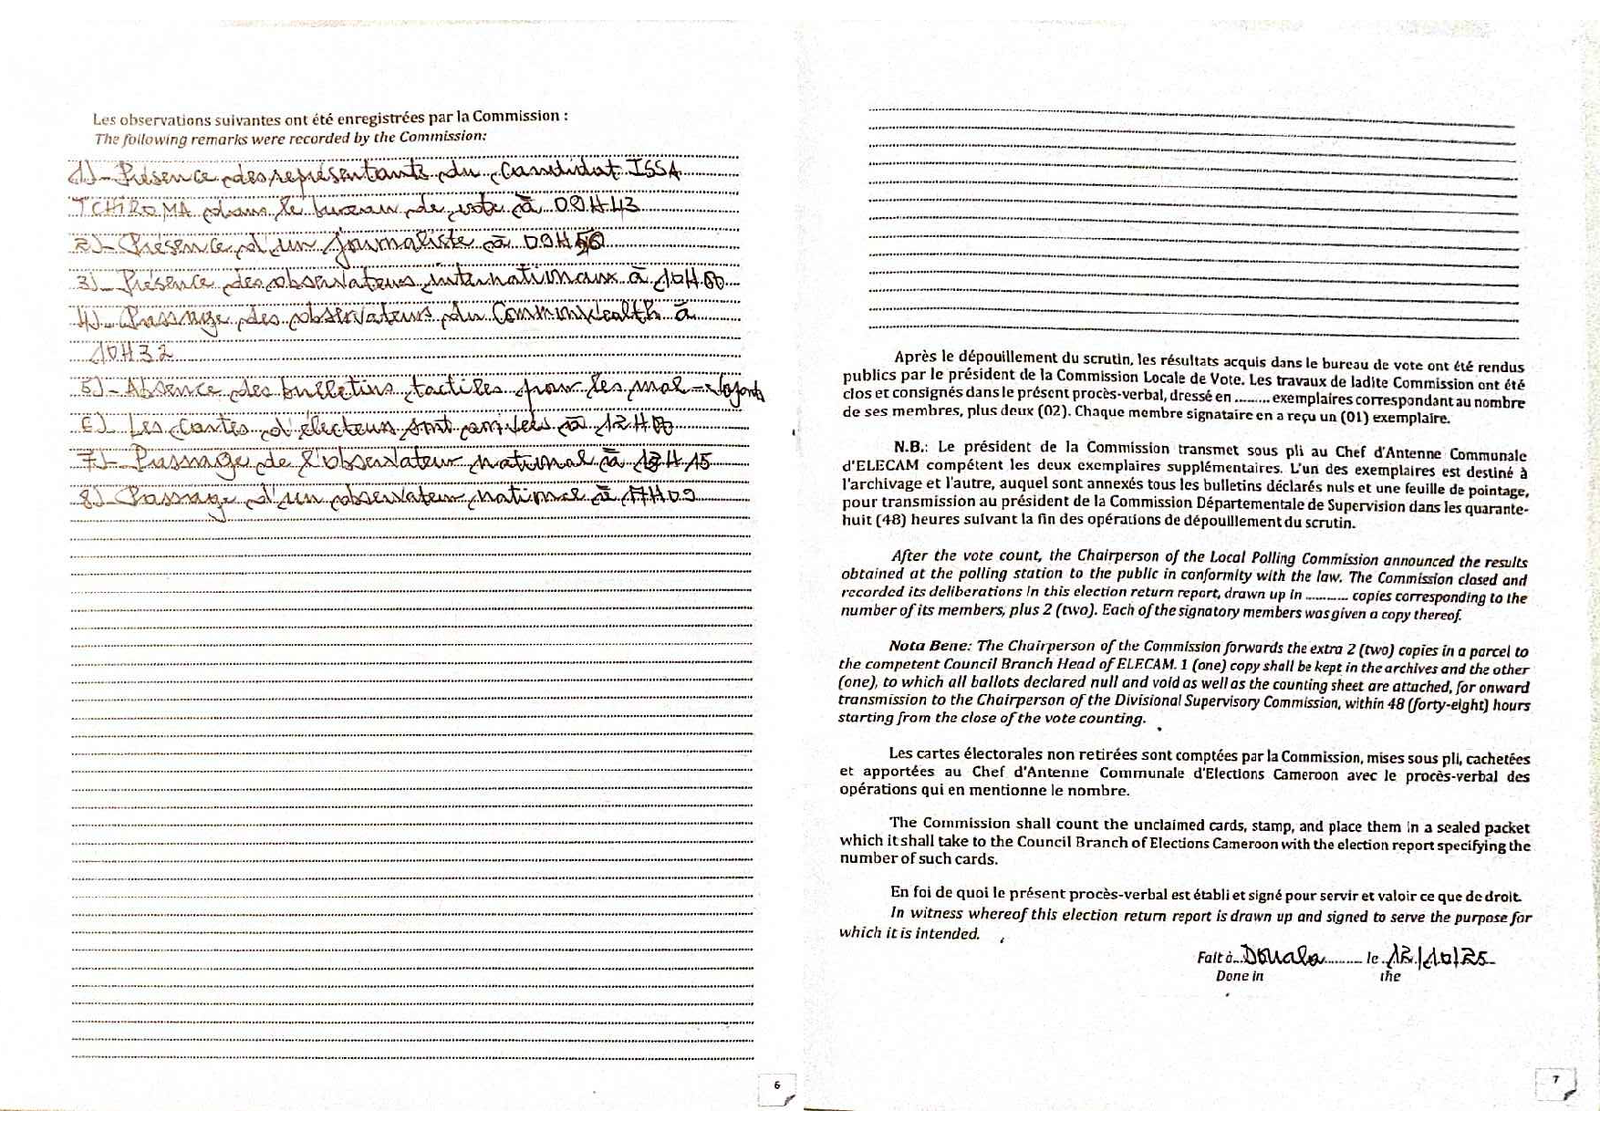 Les observations suivantes ont été enregistrées par la Commission :
The following remarks were recorded by the Commission:
1)- Présence des représentants du candidat ISSA
TCHIROMA dans le bureau de vote à 09H43
2)- Présence d'un journaliste à 09H50
3)- Présence des observateurs internationaux à 10H00
4)- Passage des observateurs du Commonwealth à
10H32
5)- Absence des bulletins tactiles pour les mal-voyants
6)- Les cartes d'électeurs sont arrivées à 12H00
7)- Passage de l'observateur national à 13H15
8)- Passage d'un observateur national à 17H09
6
Après le dépouillement du scrutin, les résultats acquis dans le bureau de vote ont été rendus
publics par le président de la Commission Locale de Vote. Les travaux de ladite Commission ont été
clos et consignés dans le présent procès-verbal, dressé en ......... exemplaires correspondant au nombre
de ses membres, plus deux (02). Chaque membre signataire en a reçu un (01) exemplaire.
N.B.: Le président de la Commission transmet sous pli au Chef d'Antenne Communale
d'ELECAM compétent les deux exemplaires supplémentaires. L'un des exemplaires est destiné à
l'archivage et l'autre, auquel sont annexés tous les bulletins déclarés nuls et une feuille de pointage,
pour transmission au président de la Commission Départementale de Supervision dans les quarante-
huit (48) heures suivant la fin des opérations de dépouillement du scrutin.
After the vote count, the Chairperson of the Local Polling Commission announced the results
obtained at the polling station to the public in conformity with the law. The Commission closed and
recorded its deliberations in this election return report, drawn up in ........... copies corresponding to the
number of its members, plus 2 (two). Each of the signatory members was given a copy thereof.
Nota Bene: The Chairperson of the Commission forwards the extra 2 (two) copies in a parcel to
the competent Council Branch Head of ELECAM. 1 (one) copy shall be kept in the archives and the other
(one), to which all ballots declared null and void as well as the counting sheet are attached, for onward
transmission to the Chairperson of the Divisional Supervisory Commission, within 48 (forty-eight) hours
starting from the close of the vote counting.
Les cartes électorales non retirées sont comptées par la Commission, mises sous pli, cachetées
et apportées au Chef d'Antenne Communale d'Elections Cameroon avec le procès-verbal des
opérations qui en mentionne le nombre.
The Commission shall count the unclaimed cards, stamp, and place them in a sealed packet
which it shall take to the Council Branch of Elections Cameroon with the election report specifying the
number of such cards.
En foi de quoi le présent procès-verbal est établi et signé pour servir et valoir ce que de droit.
In witness whereof this election return report is drawn up and signed to serve the purpose for
which it is intended.
Fait à Douala le 12/10/25
Done in the
7